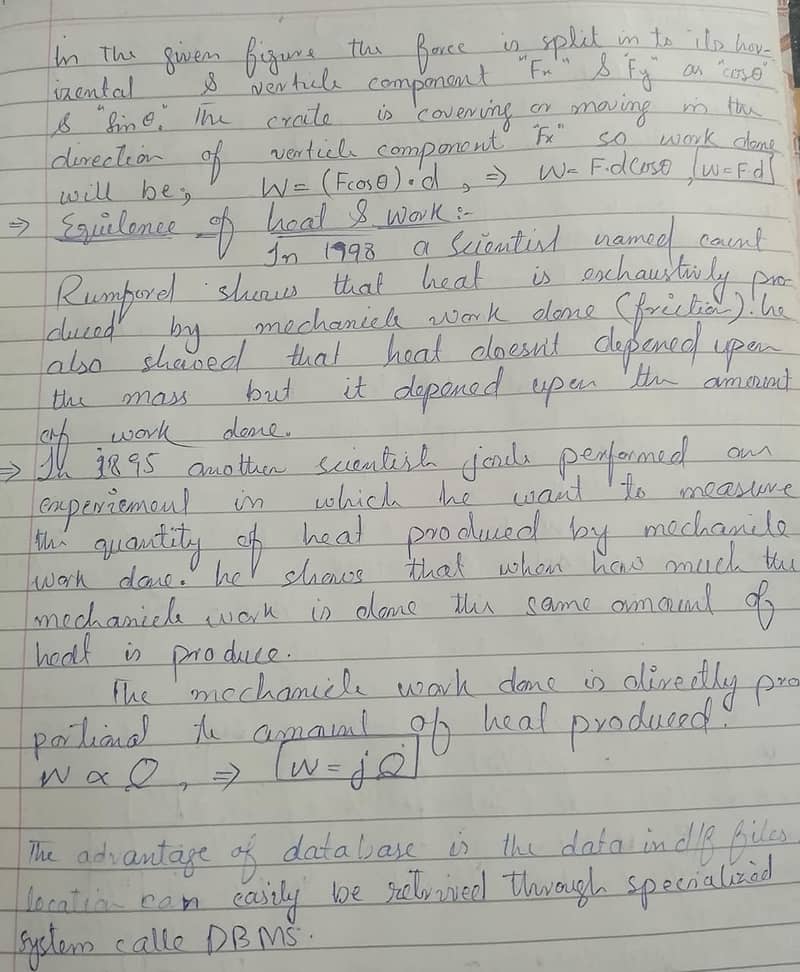 In The given figure the force is split in to its hor-
izental & verticle component "Fx" & "Fy" as "cosθ"
& "Sinθ". The crate is covering or moving in the
direction of verticle component "Fx" so work done
will be; W= (Fcosθ)·d , ⇒ W= F·dCosθ , [W=F·d]
⇒ Equilence of heat & work :-
In 1998 a Scientist named count
Rumford shows that heat is exhaustivly pro-
duced by mechanicle work done (friction). he
also showed that heat doesnt depened upon
the mass but it depened upon the amount
of work done.
⇒ In 1895 another scientist joule performed an
experiement in which he want to measure
the quantity of heat produced by mechanicle
work done. he shows that when how much the
mechanicle work is done the same amount of
heat is produce.
The mechanicle work done is directly pro
portional to amount of heat produced.
W ∝ Q , ⇒ [W = j Q]
The advantage of database is the data in d/f files
location can easily be retrived through specialized
system calle DBMS.